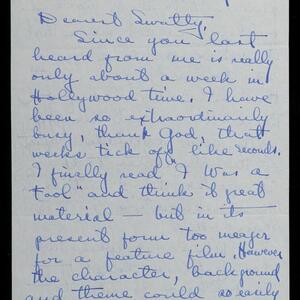 Dearest Swatty,
Since you last
heard from me is really
only about a week in
Hollywood time. I have
been so extraordinarily
busy, thank God, that
weeks tick off like seconds.
I finally read "I Was a
Fool" and think it great
material — but in its
present form too meager
for a feature film. However
the character, background
and theme could so easily